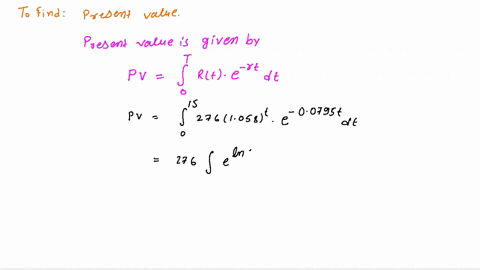 To find: Present value.
Present value is given by
PV = ∫₀ᵀ R(t)·e^{-rt} dt
PV = ∫₀¹⁵ 276(1.058)^t · e^{-0.0795t} dt
= 276 ∫ e^{ln·